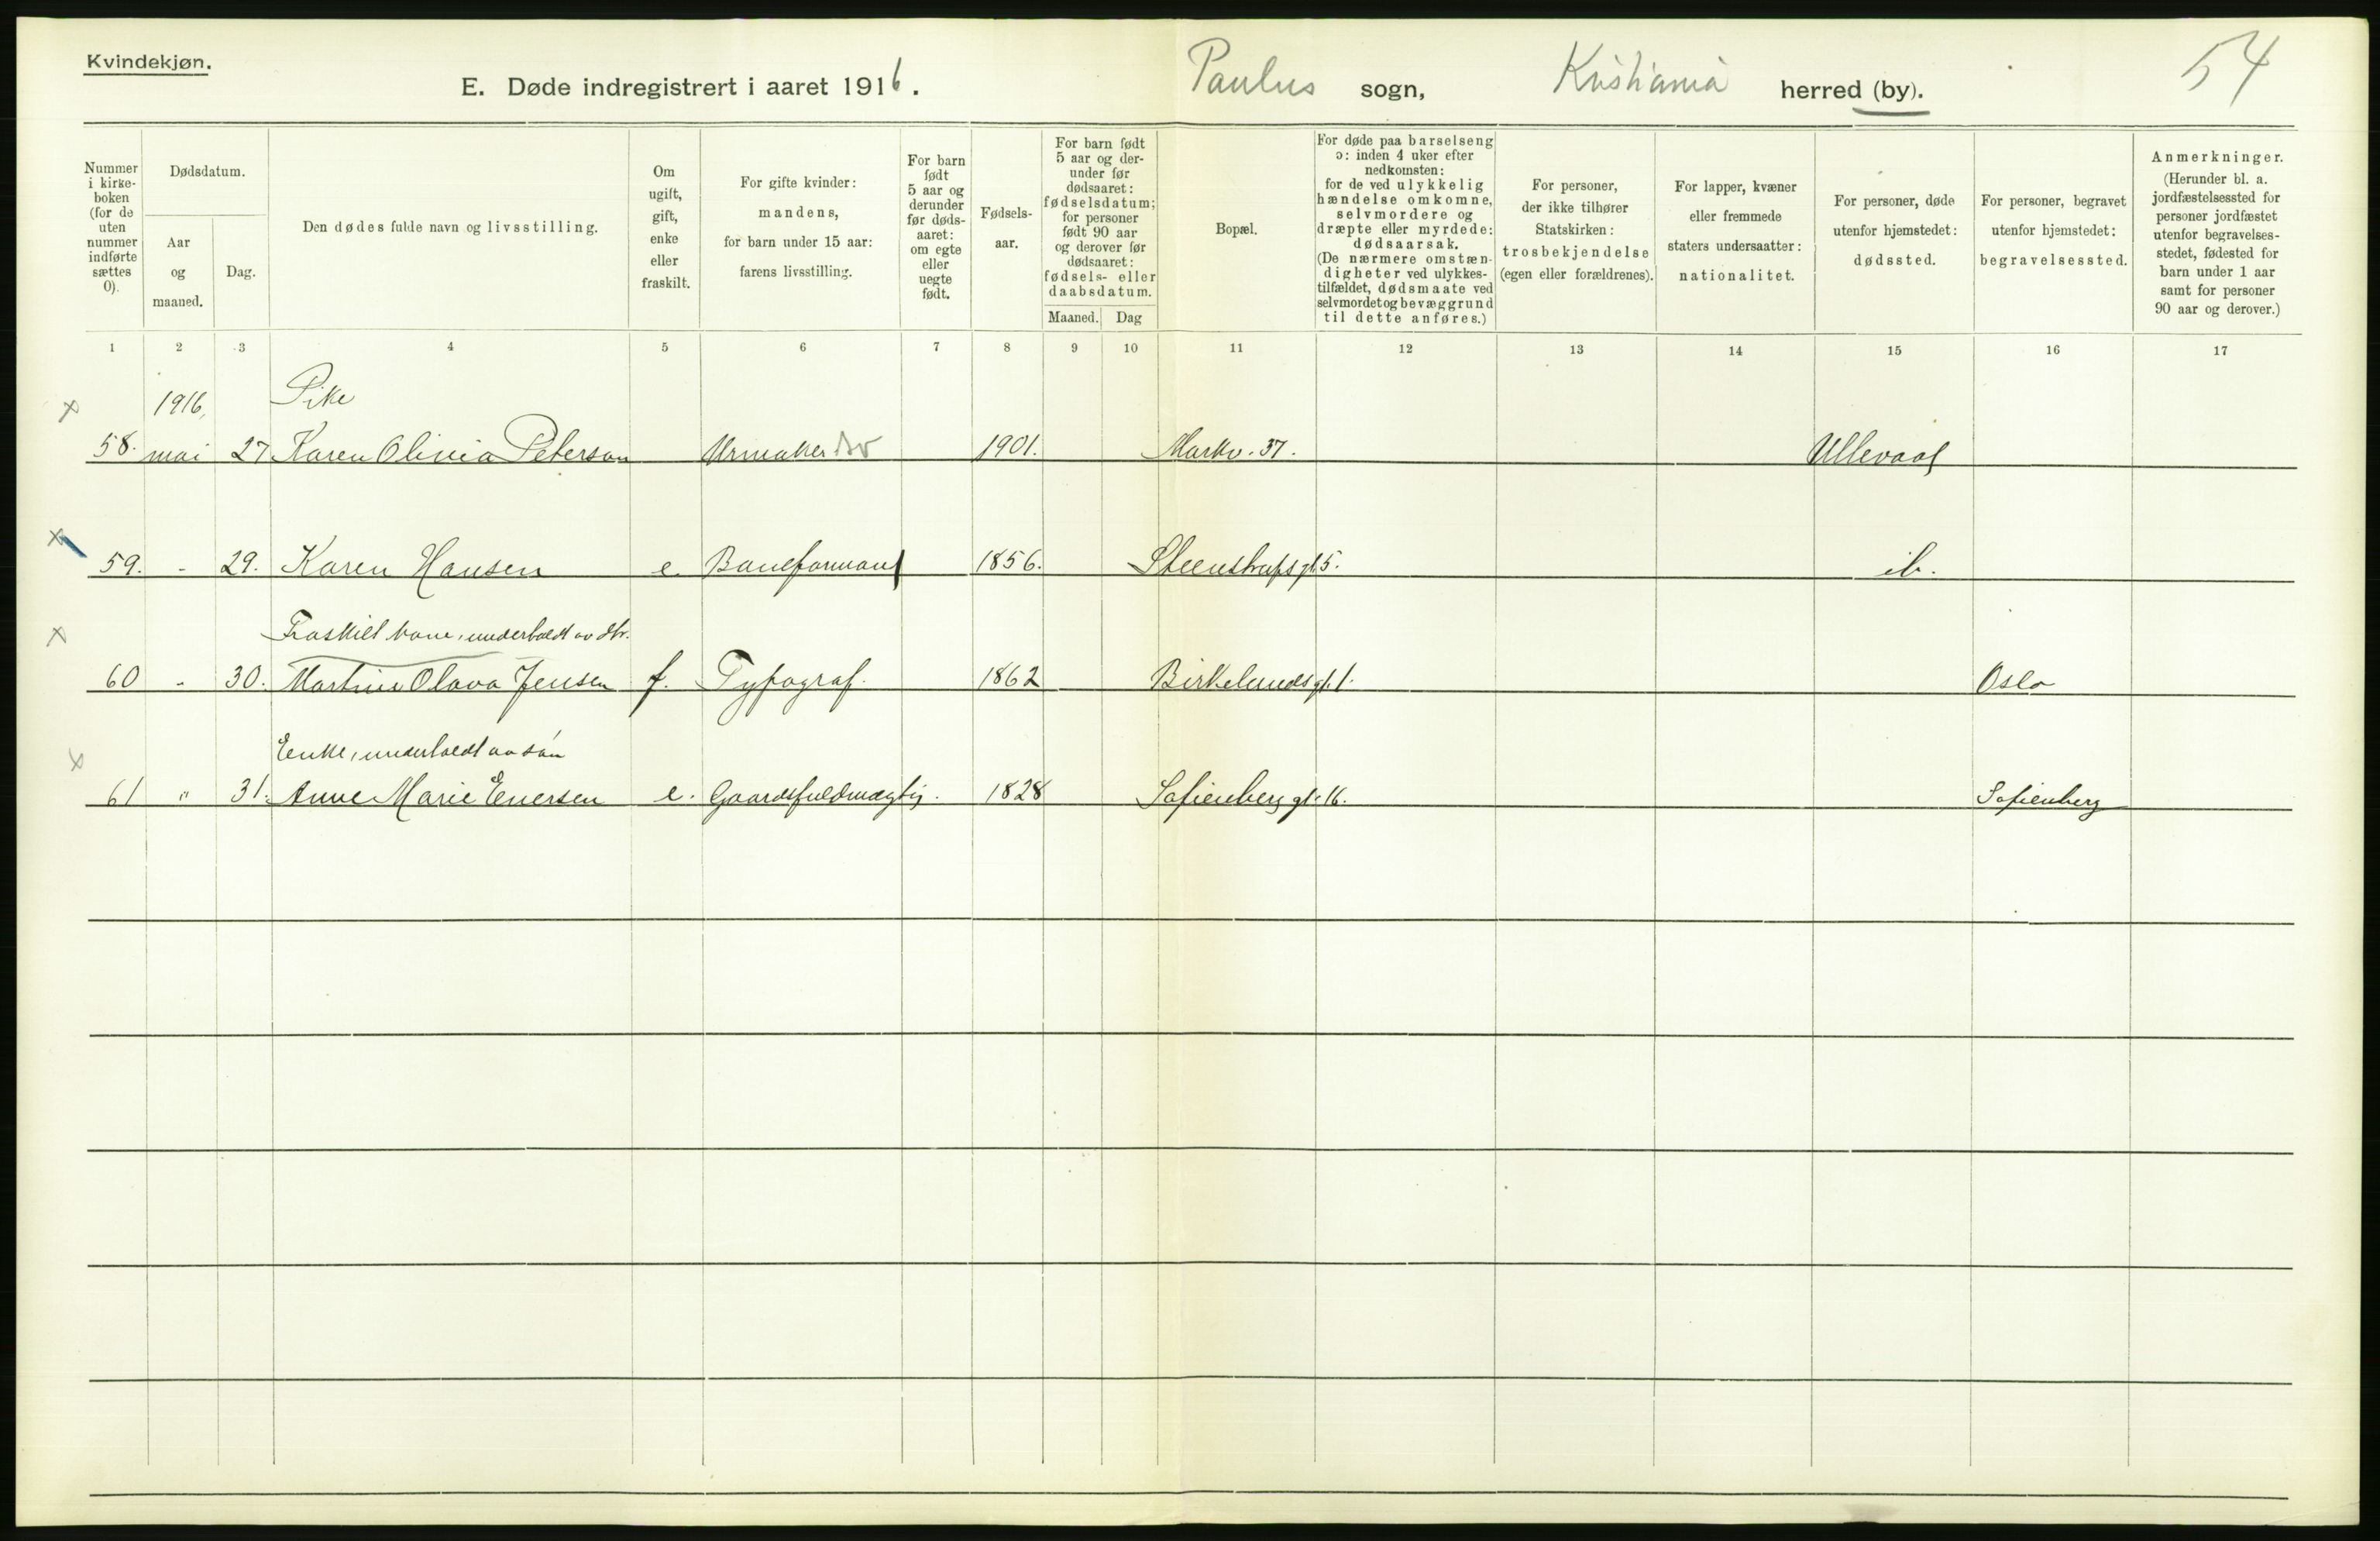 Kvindekjøn.
E. Døde indregistrert i aaret 1916.
Paulus sogn, Kristiania herred (by).
54
Nummer i kirke- boken (for de uten nummer indførte sættes 0).
Dødsdatum.
Aar og maaned.
Dag.
Den dødes fulde navn og livsstilling.
Om ugift, gift, enke eller fraskilt.
For gifte kvinder: mandens, for barn under 15 aar: farens livsstilling.
For barn født 5 aar og derunder før døds- aaret: om egte eller uegte født.
Fødsels- aar.
For barn født 5 aar og der- under før dødsaaret: fødselsdatum; for personer født 90 aar og derover før dødsaaret: fødsels- eller daabsdatum.
Maaned.
Dag
Bopæl.
For døde paa barselseng ɔ: inden 4 uker efter nedkomsten: for de ved ulykkelig hændelse omkomne, selvmordere og dræpte eller myrdede: dødsaarsak. (De nærmere omstæn- digheter ved ulykkes- tilfældet, dødsmaate ved selvmordet og bevæggrund til dette anføres.)
For personer, der ikke tilhører Statskirken: trosbekjendelse (egen eller forældrenes).
For lapper, kvæner eller fremmede staters undersaatter: nationalitet.
For personer, døde utenfor hjemstedet: dødssted.
For personer, begravet utenfor hjemstedet: begravelsessted.
Anmerkninger. (Herunder bl. a. jordfæstelsessted for personer jordfæstet utenfor begravelses- stedet, fødested for barn under 1 aar samt for personer 90 aar og derover.)
1 2 3 4 5 6 7 8 9 10 11 12 13 14 15 16 17
x 1916, Pike
58. mai 27 Karen Olivia Peterson Urmaker 1901. Markv. 37. Ullevaal
x
59. - 29. Karen Hansen e. Baneformand 1856. Steenstrupsgt. 5. ib.
x Fraskilt kone, underholdt av
60 - 30. Martine Olava Jensen f. Typograf. 1862 Birkelundsgt. 1. Oslo
x Enke, underholdt av søn
61 " 31. Anne Marie Evensen e. Gaardsfuldmægtig. 1828 Sofienberggt. 16. Sofienberg